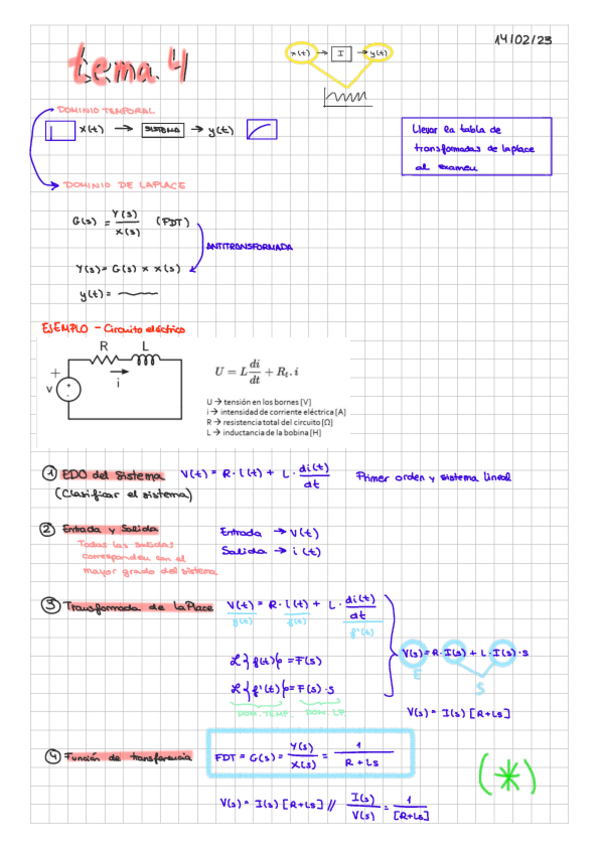 14/02/23
tema.4
x(t) → I → y(t)
DOMINIO TEMPORAL
x(t) → SISTEMA → y(t)
Llevar la tabla de
transformadas de laplace
al examen
DOMINIO DE LAPLACE
G(s) = Y(s)/X(s) (FDT)
ANTITRANSFORMADA
Y(s) = G(s) x X(s)
y(t) =
EJEMPLO - Circuito eléctrico
R L
+
v
-
i
U = L di/dt + Rt.i
U → tensión en los bornes [V]
i → intensidad de corriente eléctrica [A]
R → resistencia total del circuito [Ω]
L → inductancia de la bobina [H]
① EDO del sistema V(t) = R·i(t) + L· di(t)/dt Primer orden y sistema lineal
(Clasificar el sistema)
② Entrada y Salida Entrada → V(t)
Salida → i(t)
Todas las salidas
corresponden con el
mayor grado del sistema
③ Transformada de LaPlace V(t) = R·i(t) + L· di(t)/dt
g(t) f(t) f'(t)
V(s) = R·I(s) + L·I(s)·s
E S
ℒ{f(t)} = F(s)
ℒ{f'(t)} = F(s)·s
DOM.TEMP. DOM.LP.
V(s) = I(s) [R+Ls]
④ Función de transferencia FDT = G(s) = Y(s)/X(s) = 1/R+Ls
(*)
V(s) = I(s) [R+Ls] // I(s)/V(s) = 1/[R+Ls]